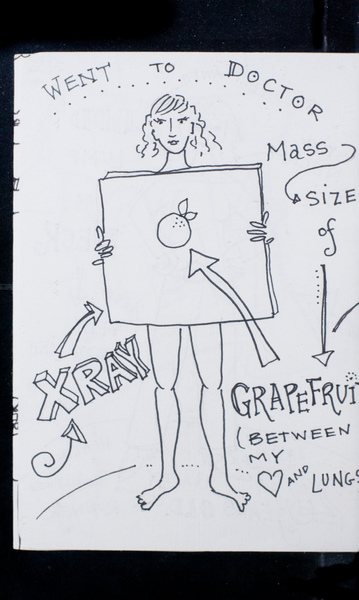 WENT TO DOCTOR
Mass
SIZE
of
GRAPEFRUI
(BETWEEN
MY
♡ AND LUNGS
XRAY